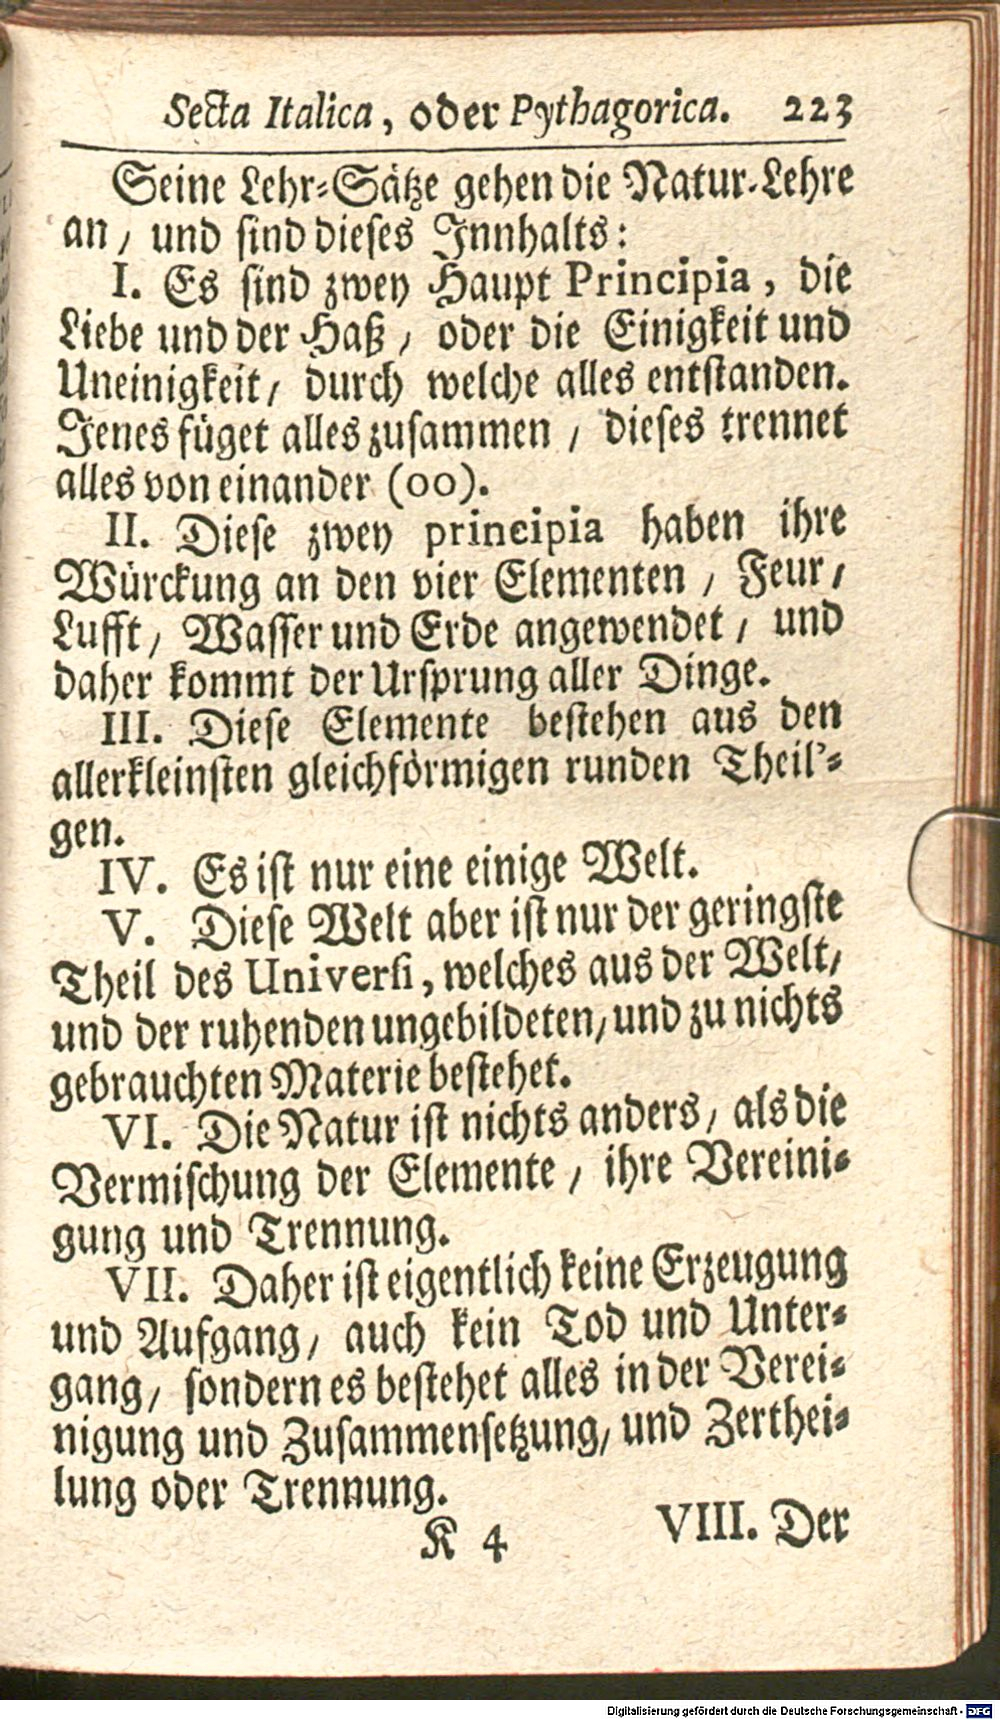 Secta Italica, oder Pythagorica. 223
Seine Lehr-Sätze gehen die Natur-Lehre
an, und sind dieses Innhalts:
I. Es sind zwey Haupt Principia, die
Liebe und der Haß, oder die Einigkeit und
Uneinigkeit, durch welche alles entstanden.
Jenes füget alles zusammen, dieses trennet
alles von einander (oo).
II. Diese zwey principia haben ihre
Würckung an den vier Elementen, Feur,
Lufft, Wasser und Erde angewendet, und
daher kommt der Ursprung aller Dinge.
III. Diese Elemente bestehen aus den
allerkleinsten gleichförmigen runden Theil'-
gen.
IV. Es ist nur eine einige Welt.
V. Diese Welt aber ist nur der geringste
Theil des Universi, welches aus der Welt,
und der ruhenden ungebildeten, und zu nichts
gebrauchten Materie bestehet.
VI. Die Natur ist nichts anders, als die
Vermischung der Elemente, ihre Vereini-
gung und Trennung.
VII. Daher ist eigentlich keine Erzeugung
und Aufgang, auch kein Tod und Unter-
gang, sondern es bestehet alles in der Verei-
nigung und Zusammensetzung, und Zerthei-
lung oder Trennung.
K 4 VIII. Der
Digitalisierung gefördert durch die Deutsche Forschungsgemeinschaft - DFG